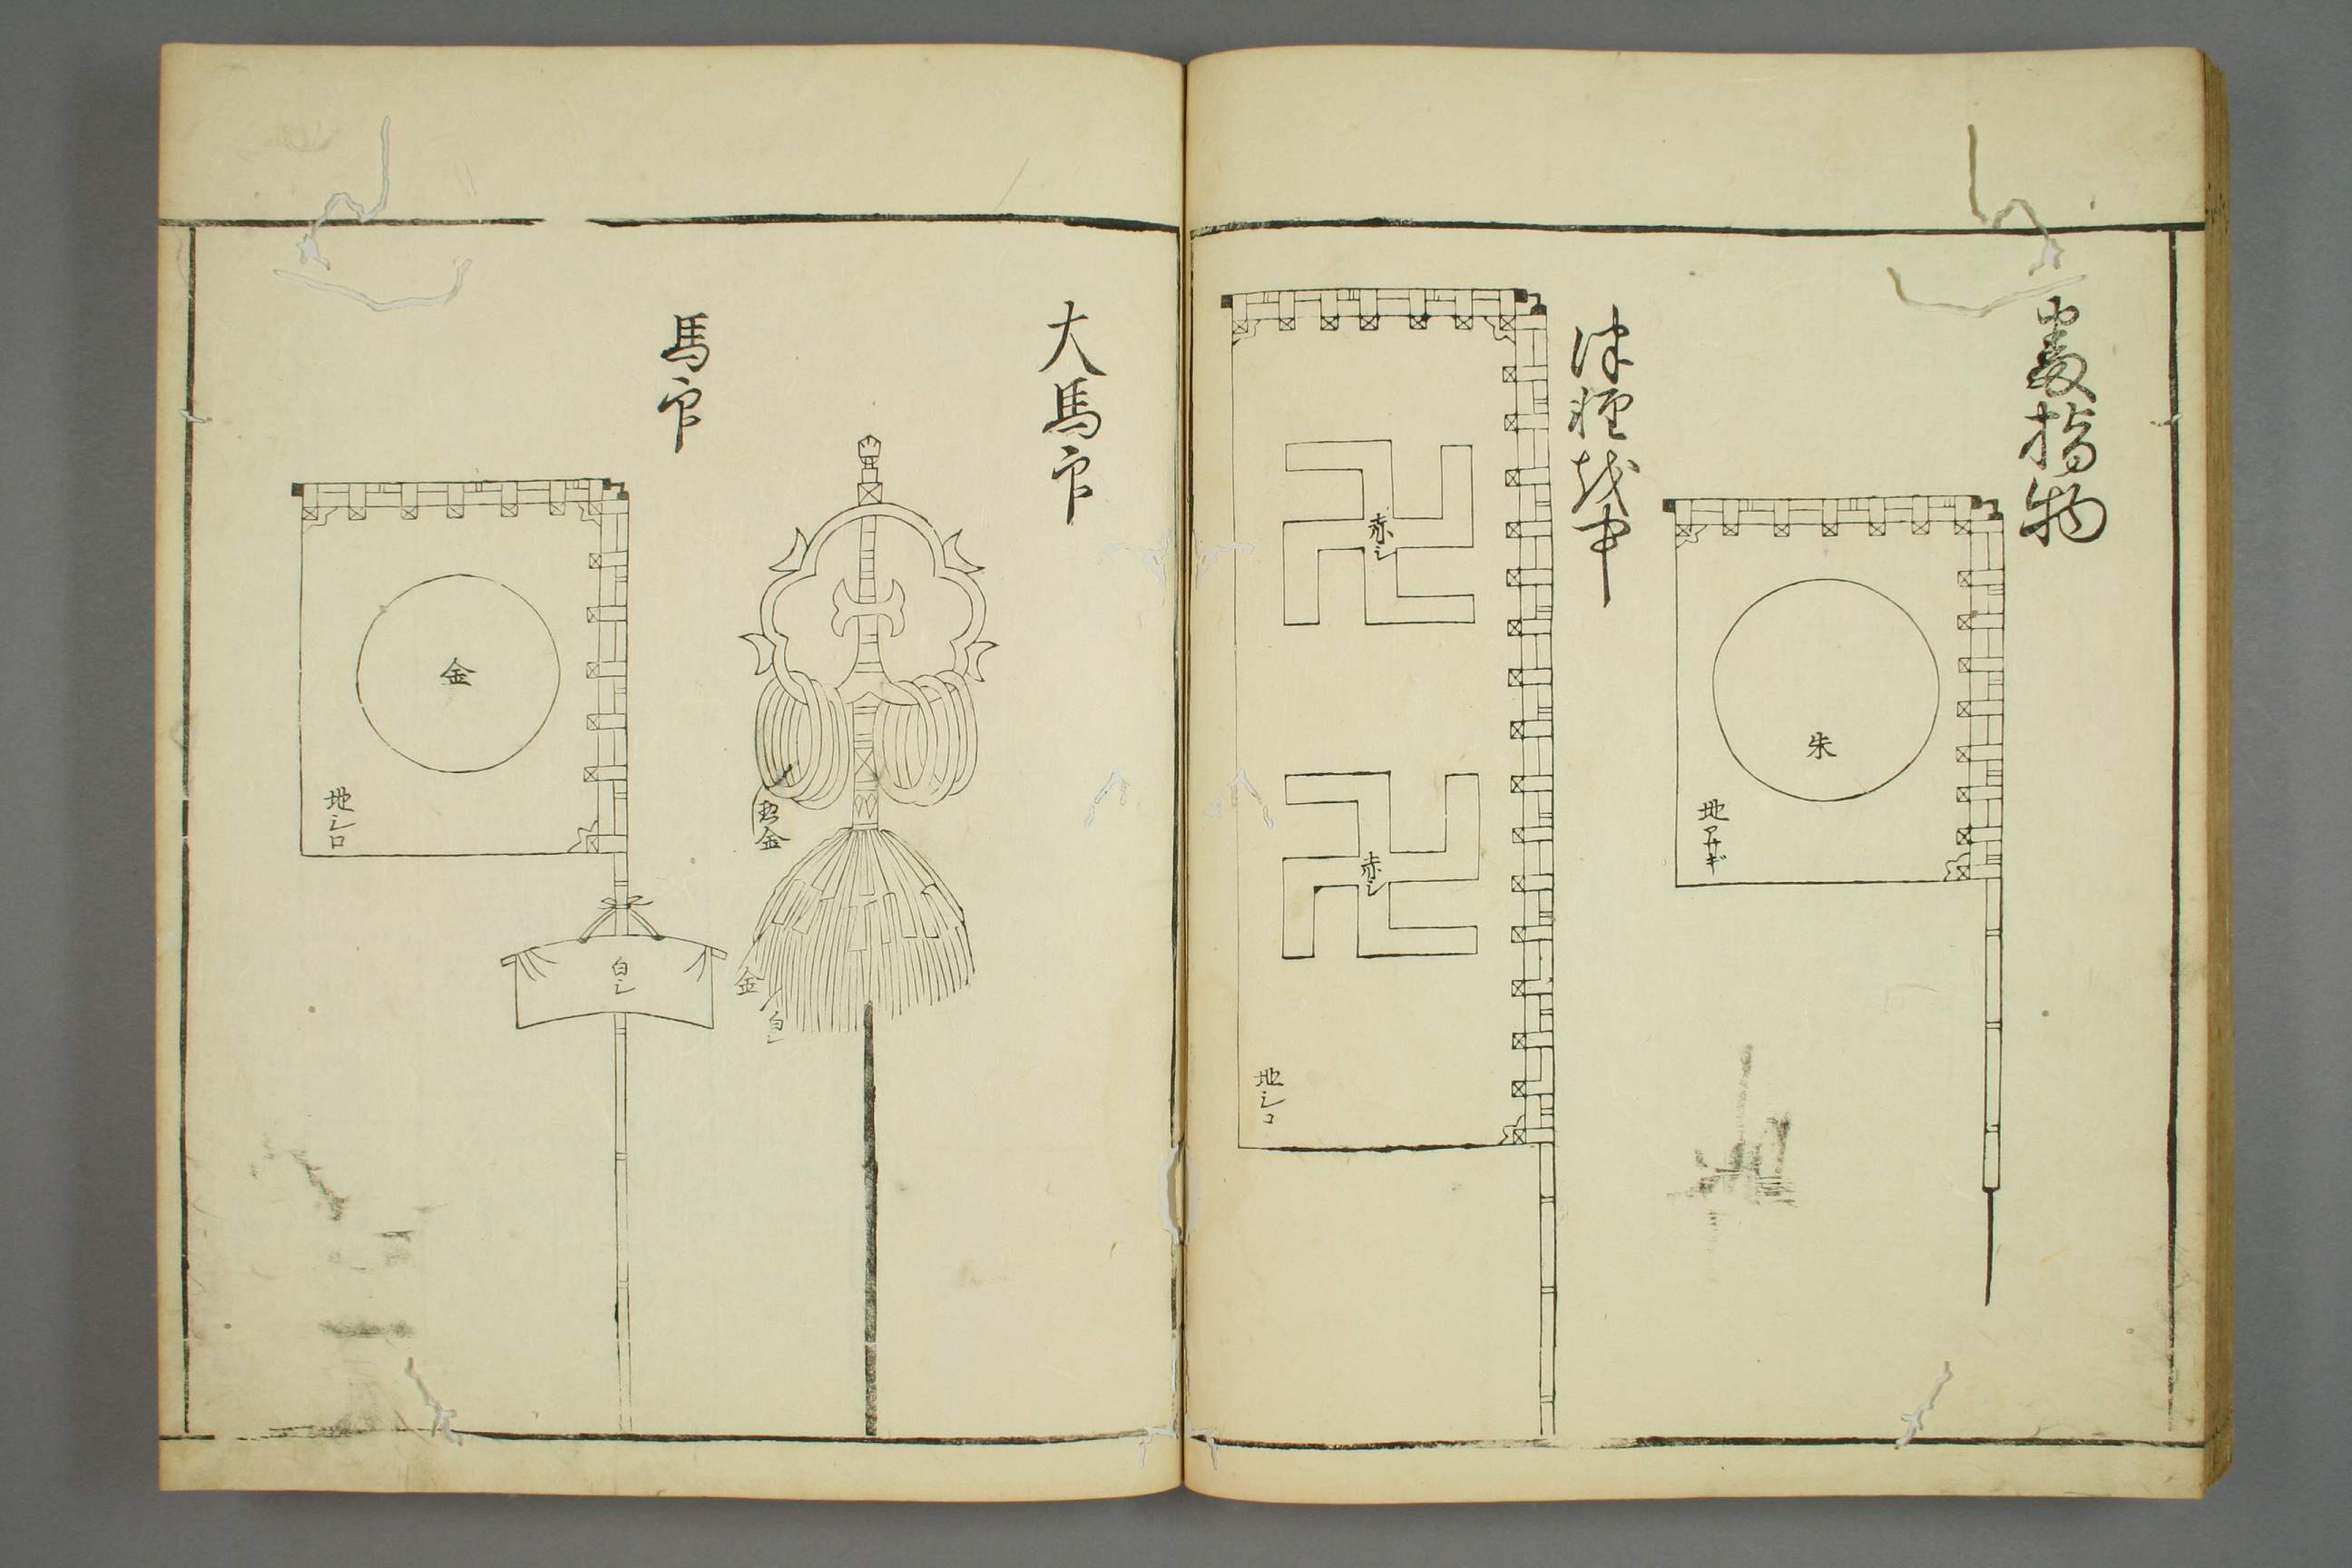 番指物
朱
地アサギ
津軽越中
赤シ
赤シ
地シロ
大馬印
惣金
金
白シ
馬印
金
地シロ
白シ